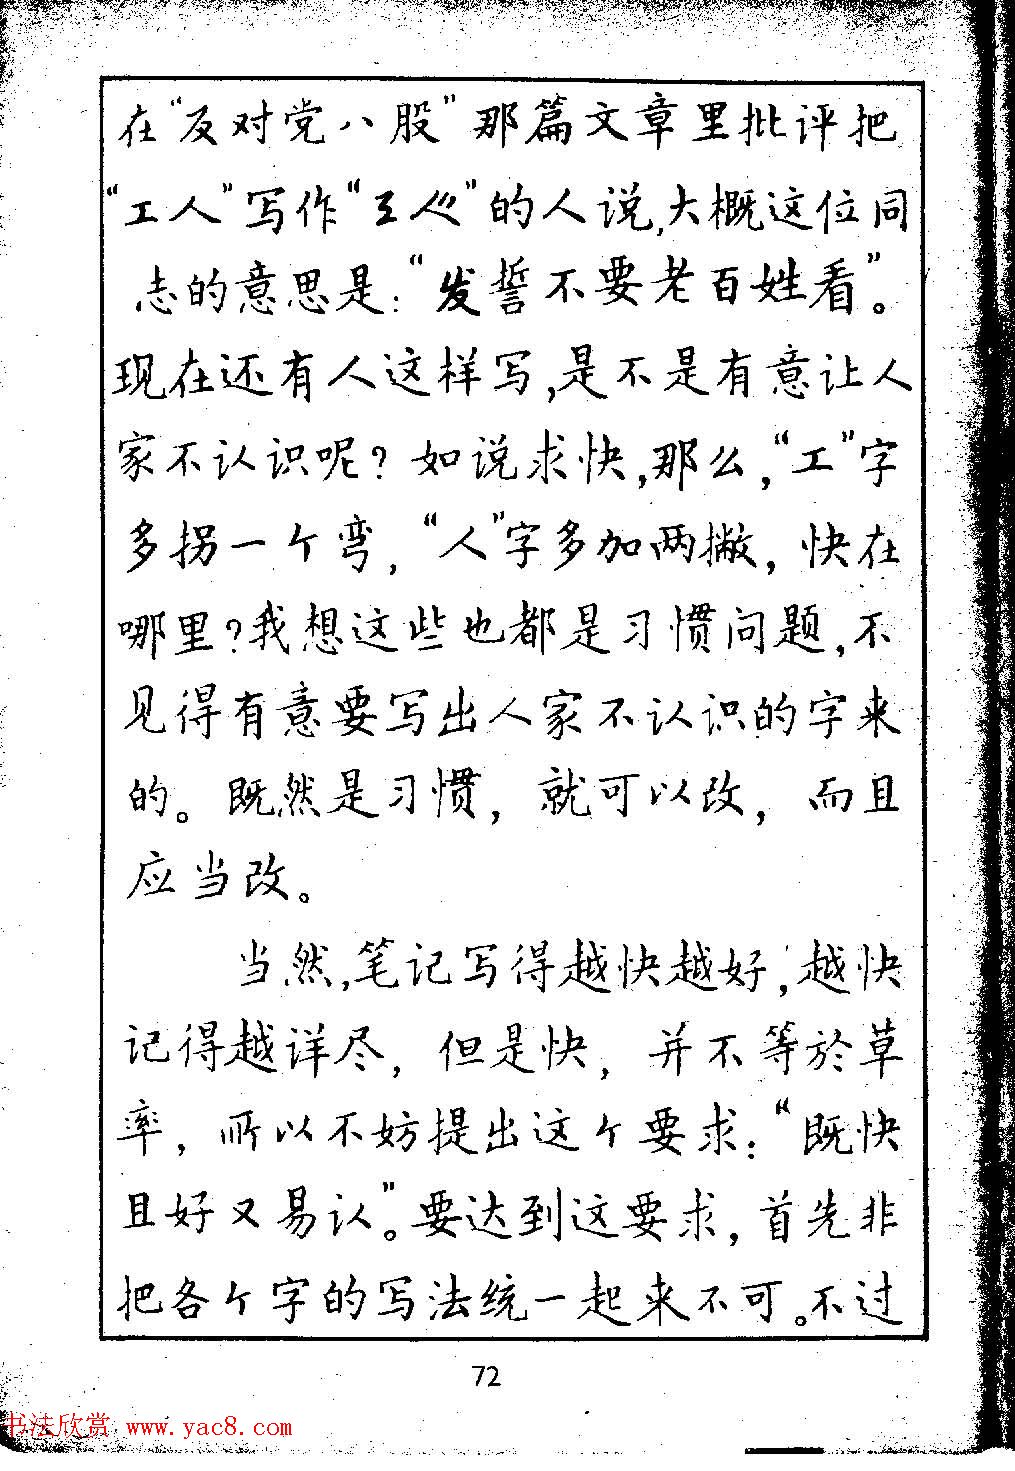 在“反对党八股”那篇文章里批评把
“工人”写作“𢒄𠆩”的人说,大概这位同
志的意思是:“发誓不要老百姓看”。
现在还有人这样写,是不是有意让人
家不认识呢?如说求快,那么,“工”字
多拐一个弯,“人”字多加两撇,快在
哪里?我想这些也都是习惯问题,不
见得有意要写出人家不认识的字来
的。既然是习惯,就可以改,而且
应当改。
当然,笔记写得越快越好,越快
记得越详尽,但是快,并不等於草
率,所以不妨提出这个要求:“既快
且好又易认”。要达到这要求,首先非
把各个字的写法统一起来不可。不过
72
书法欣赏 www.yac8.com